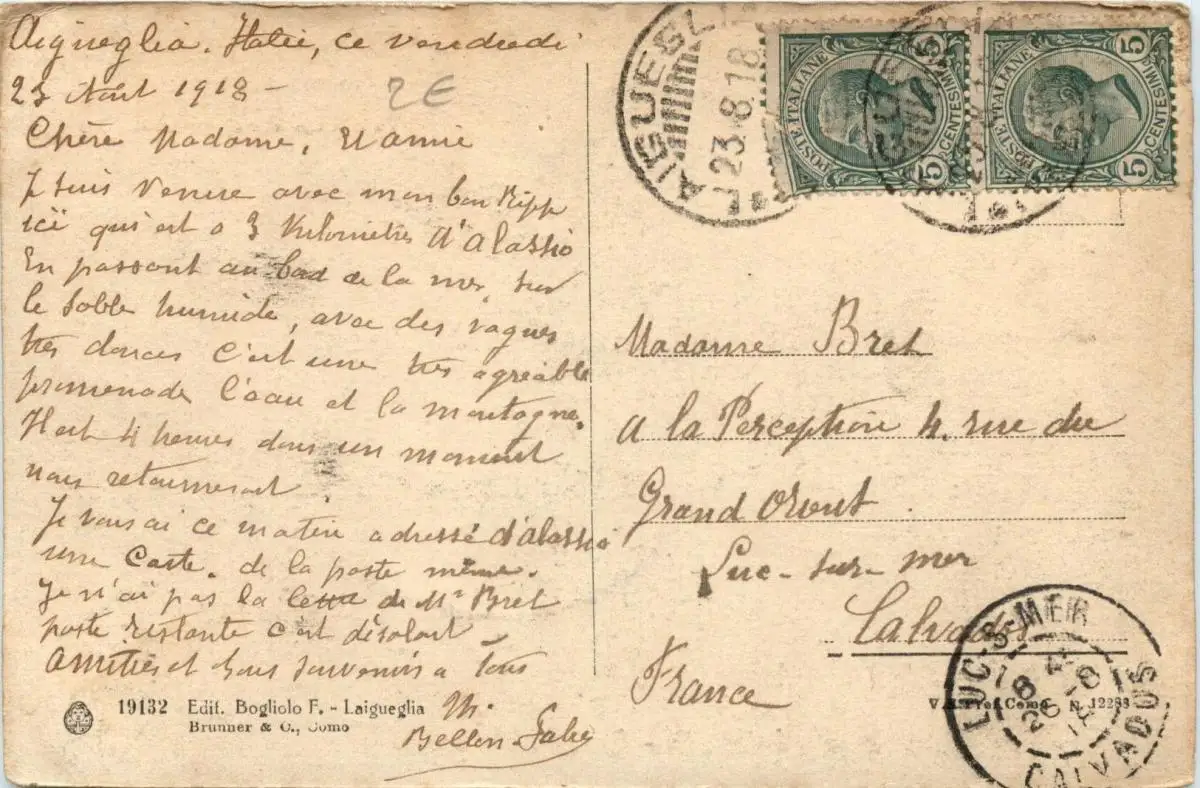 Aigueglia. Italie, ce vendredi
23 Août 1918 -
2€
Chère Madame,
Je suis venue avec mon bon
ici qui est a 3 Kilomètres d'Alassio
En passant au bord de la mer, sur
le sable humide, avec des vagues
très douces c'est une très agréable
promenade l'eau et la montagne.
Il est 4 heures dans un moment
nous retournerons
Je vous ai ce matin adressé d'Alassio
une Carte. de la poste même.
Je n'ai pas la lettre de Mr Bret
poste restante c'est désolant
Amitiés et bons souvenirs a tous
M.
Bellon
19132 Edit. Bogliolo F. - Laigueglia
Brunner & C., Como
LAIGUEGLIA
23.8.18
POSTE ITALIANE
5 CENTESIMI 5
POSTE ITALIANE
5 CENTESIMI 5
Madame Bret
a la Perception 4. rue du
Grand Orient
Luc-sur-mer
Calvados
France
N. 12288
LUC-S-MER
CALVADOS